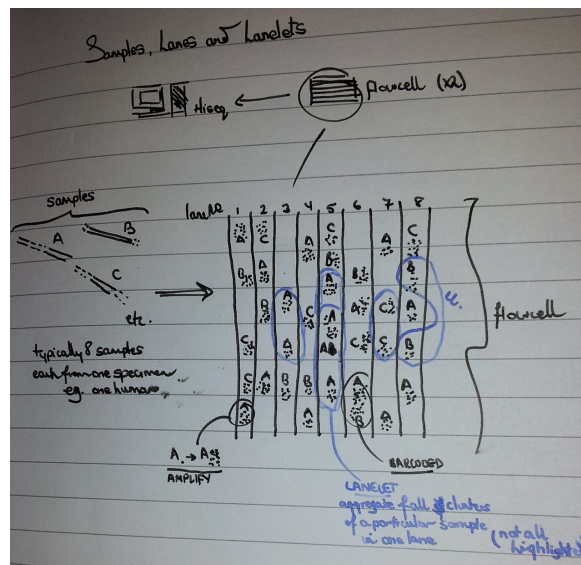 Samples, Lanes and Lanelets
flowcell (x2)
Hiseq
samples
A
B
C
etc.
typically 8 samples
each from one specimen
eg. one human
lanes 1 2 3 4 5 6 7 8
A C C C
A A A
B
B A A B B
A A A
B C A C A
C A A C C B
C A B B A A A
A A B A
flowcell
A → A
AMPLIFY
BARCODED
LANELET
aggregate of all clusters
of a particular sample
in one lane
(not all
highlighted)